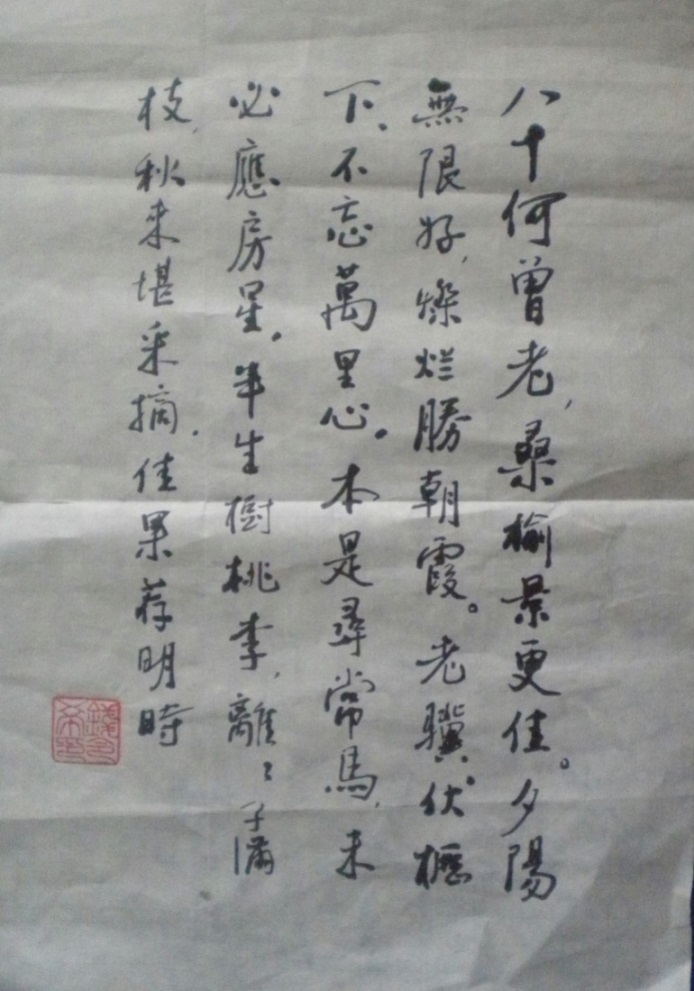 八十何曾老,桑榆景更佳。夕陽
無限好,燦烂勝朝霞。老驥伏櫪
下、不忘萬里心。本是尋常馬,未
必應房星。半生樹桃李,離〻子滿
枝,秋来堪采摘,佳果荐明時